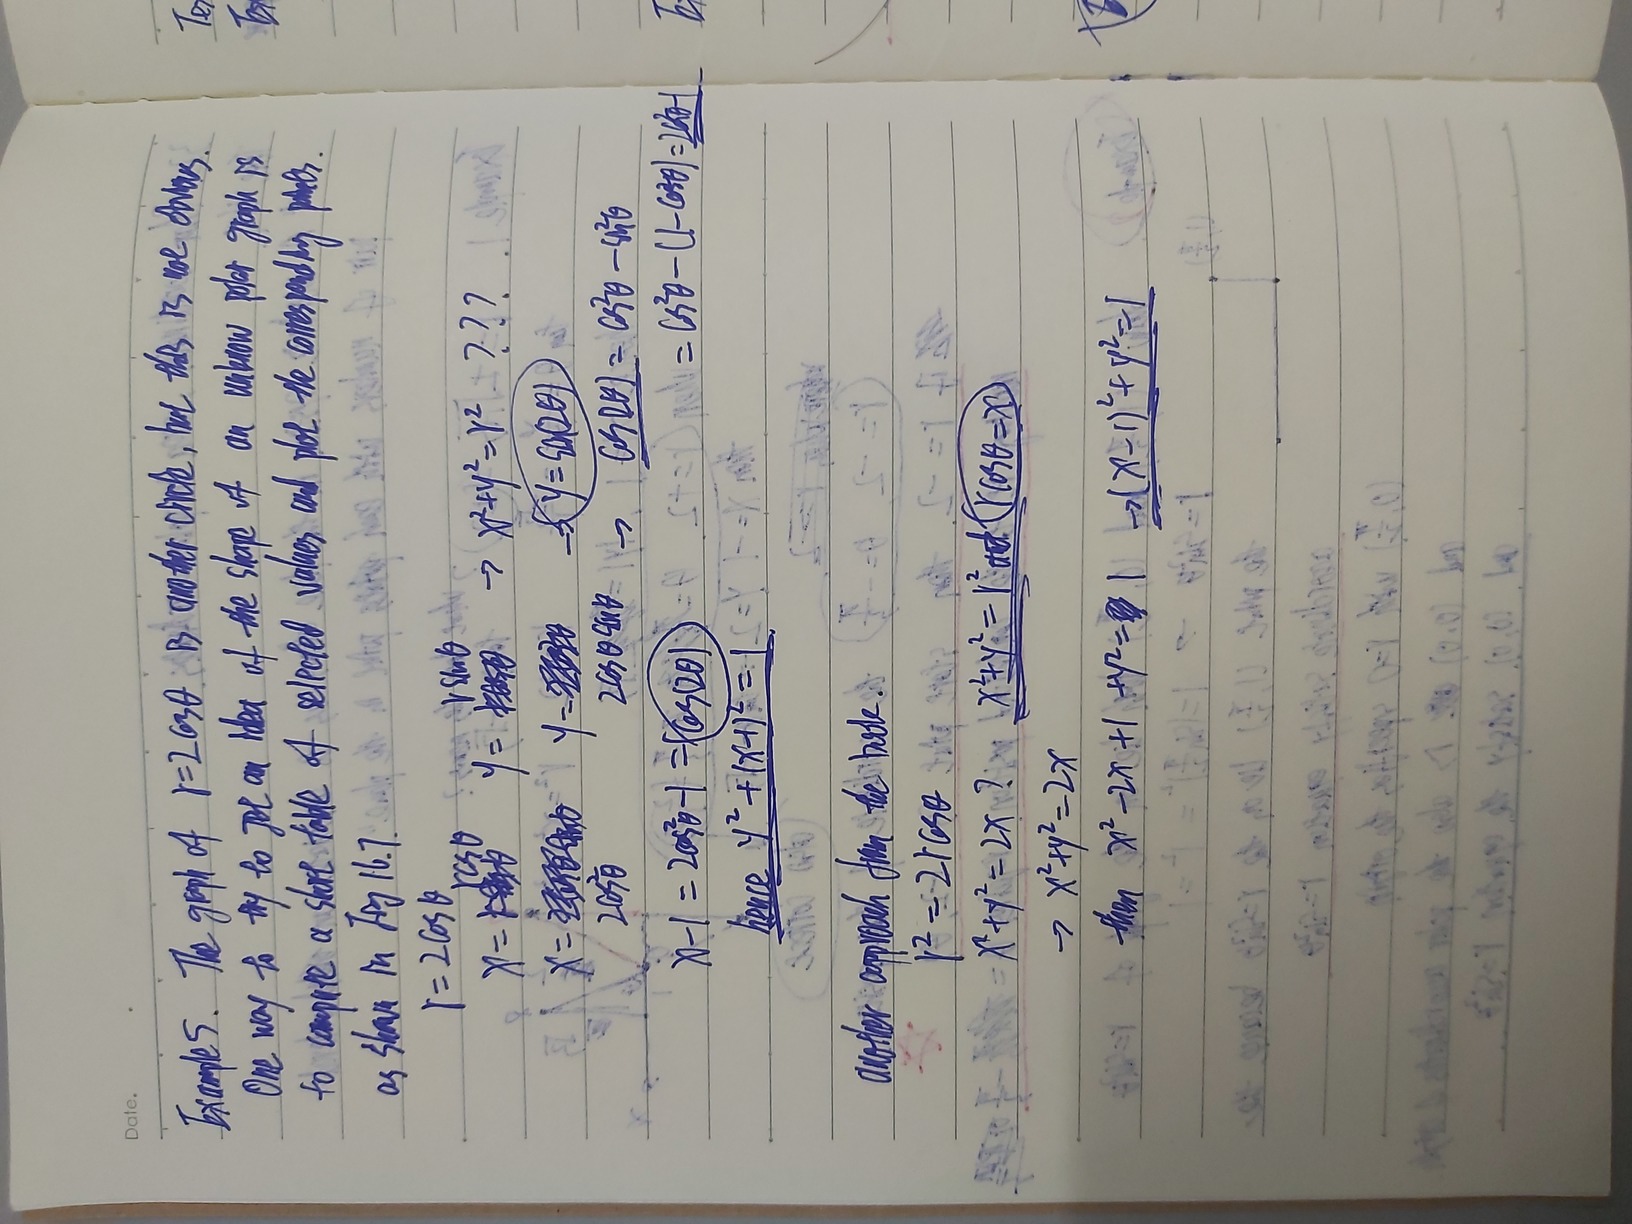 Date.
Example 5. The graph of r=2cosθ is another circle, but this is not obvious.
One way to try to get an idea of the shape of an unknow polar graph is
to compute a short table of selected values and plot the corresponding points.
as shown in Fig 16.7.
r=2cosθ
rcosθ rsinθ
x= y= → x²+y²=r² ???
x= y= → y=sin(2θ)
2cos²θ 2cosθsinθ → cos(2θ)=cos²θ-sin²θ
x-1=2cos²θ-1=cos(2θ) =cos²θ-(1-cos²θ)=2cos²θ-1
hence y²+(x-1)²=1
another approach from the book.
r²=2rcosθ
x²+y²=2x? x²+y²=r² and rcosθ=x
→ x²+y²=2x
then x²-2x+1+y²=1 →(x-1)²+y²=1